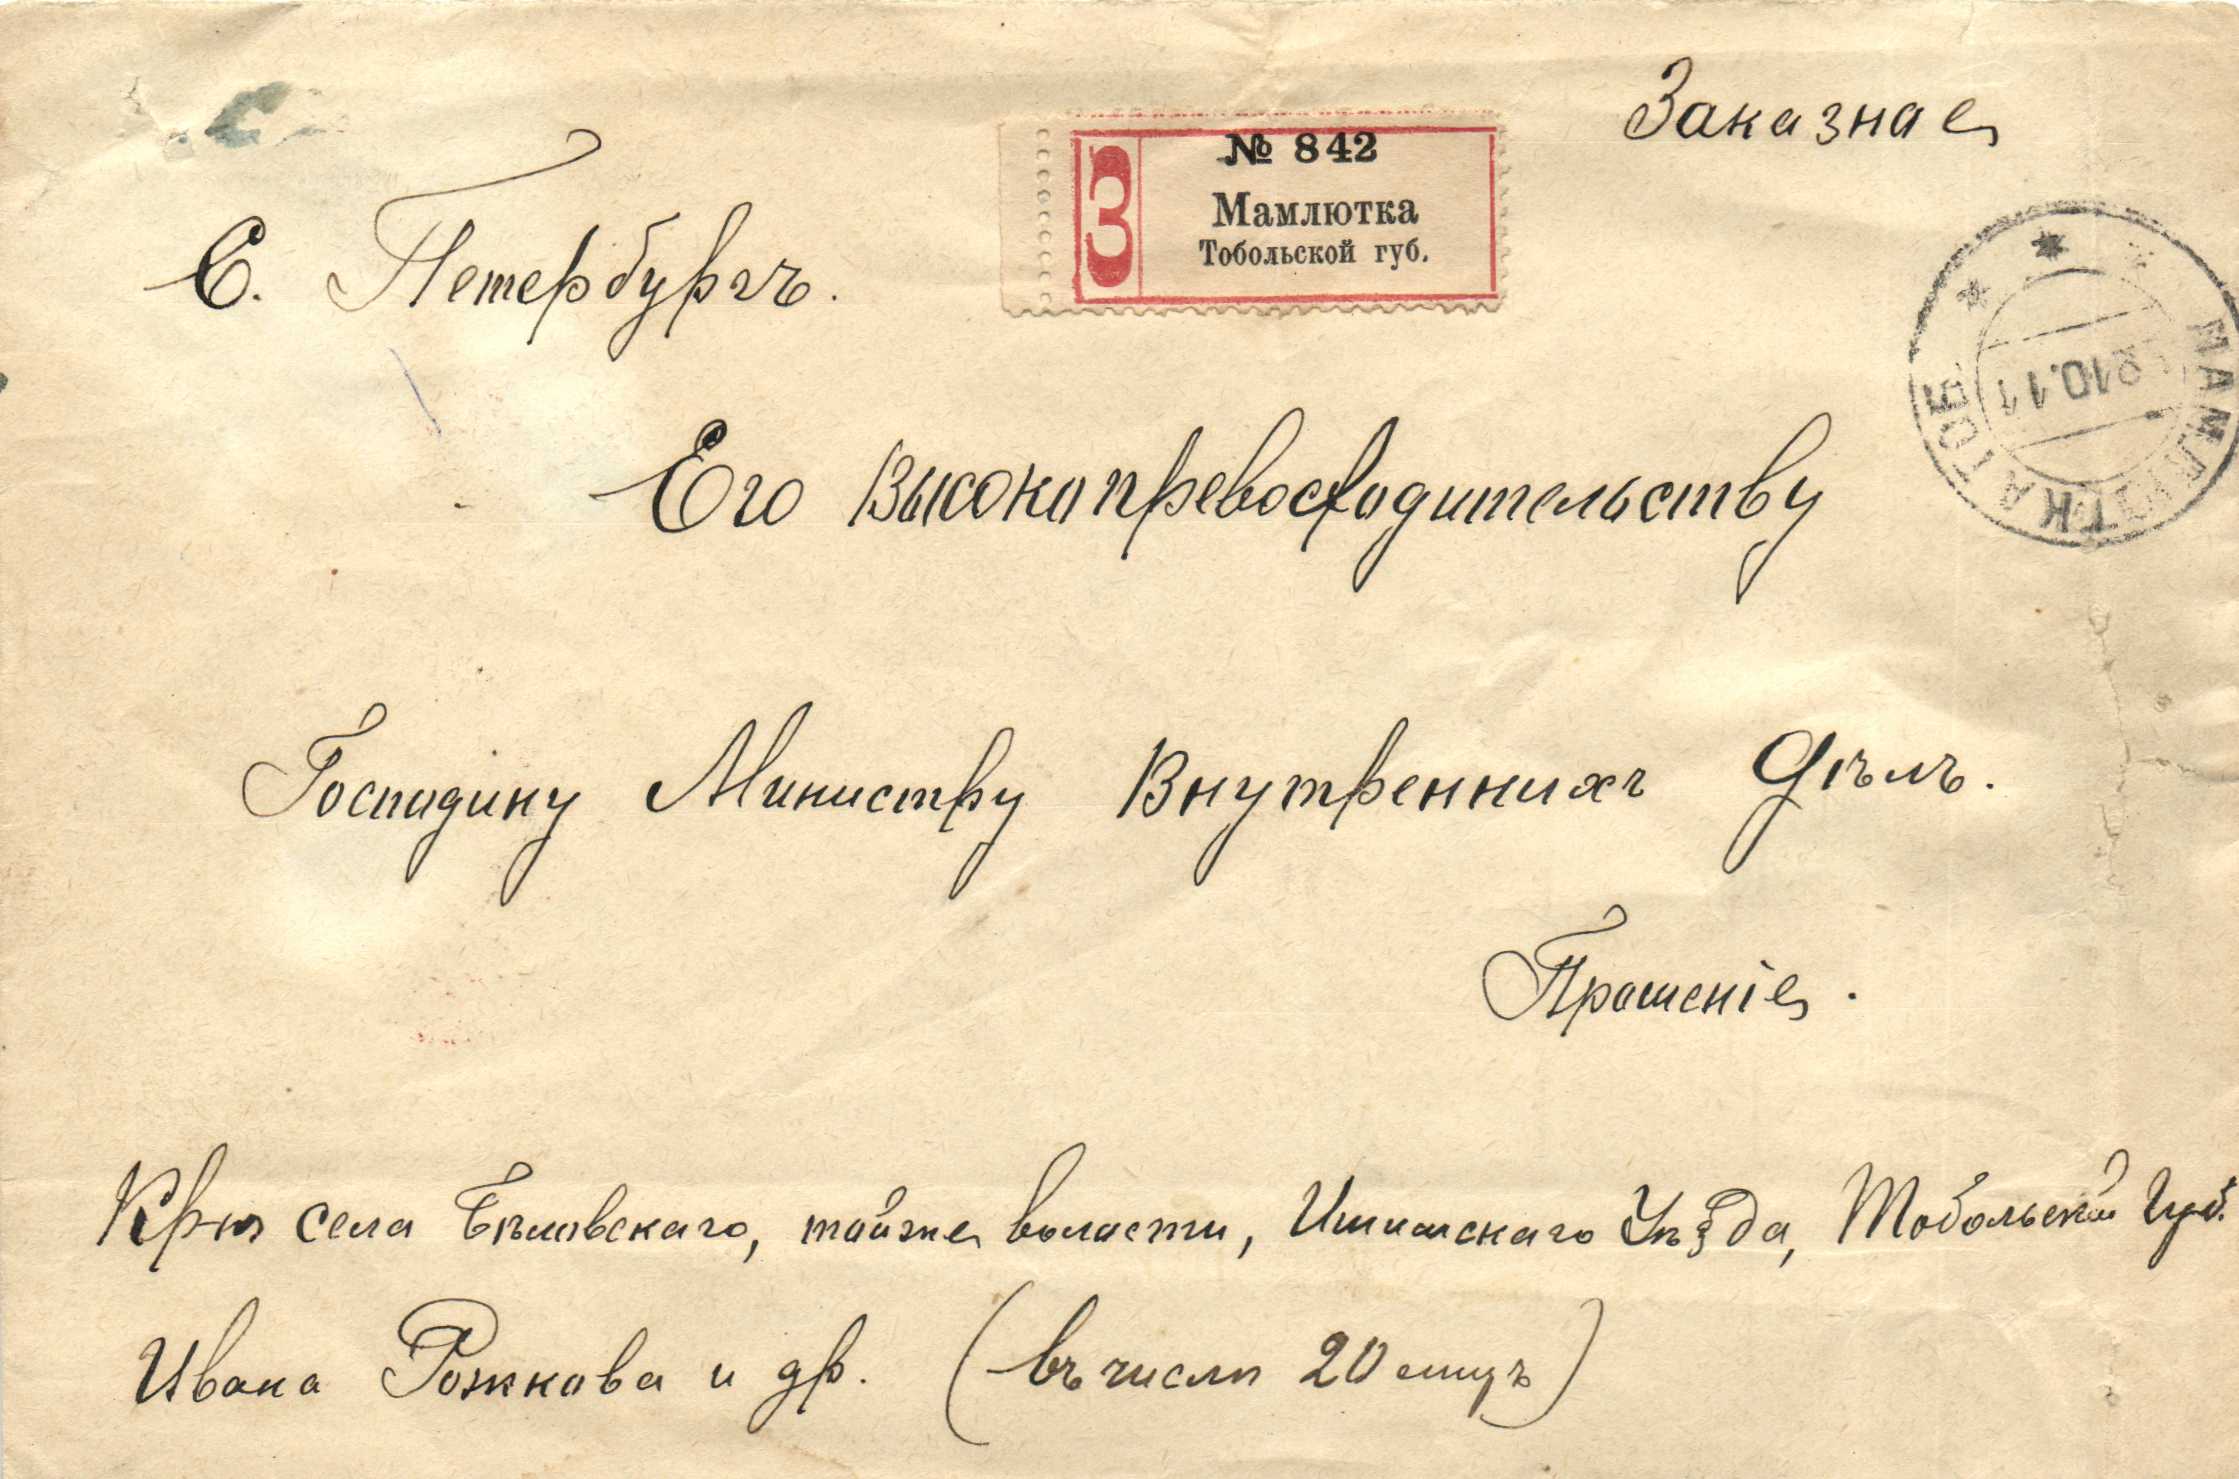 Заказное
№ 842
З
Мамлютка
Тобольской губ.
С. Петербургъ.
МАМЛЮТКА ТОБ.
10.11
Его Высокопревосходительству
Господину Министру Внутреннихъ Дѣлъ.
Прошеніе.
села Бѣловскаго, тойже волости, Ишимскаго Уѣзда, Тобольской Губ.
Ивана Рожкова и др. (въ числѣ 20 лицъ)